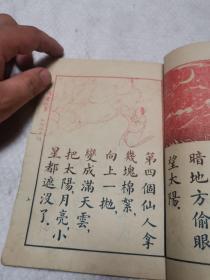 第四個仙人拿
幾塊棉絮，
向上一拋，
變成滿天雲，
把太陽，月亮，小
星都遮沒了。
暗地方偷眼
望太陽，